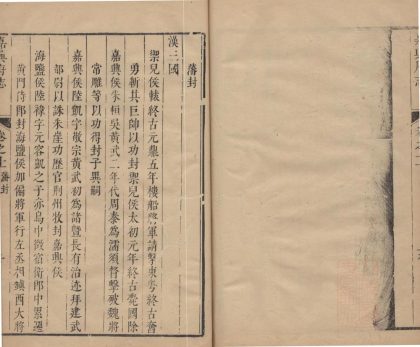 藩封
漢三國
禦兒侯轅終古元鼎五年樓船將軍請擊東粤終古奮
勇斬其巨帥以功封禦兒侯太初元年終古薨國除
嘉興侯朱桓吳黃武二年代周泰為濡須督擊破魏將
常雕等以功得封子異嗣
嘉興侯陸凱字敬宗黃武初為諸暨長有治迹拜建武
都尉以誅朱崖功歷官荆州牧封嘉興侯
海鹽侯陸禕字元容凱之子赤烏中徵宿衛郎中累遷
黃門侍郎封海鹽侯加偏將軍行左丞相鎭西大將
嘉興府志
卷之十
藩封